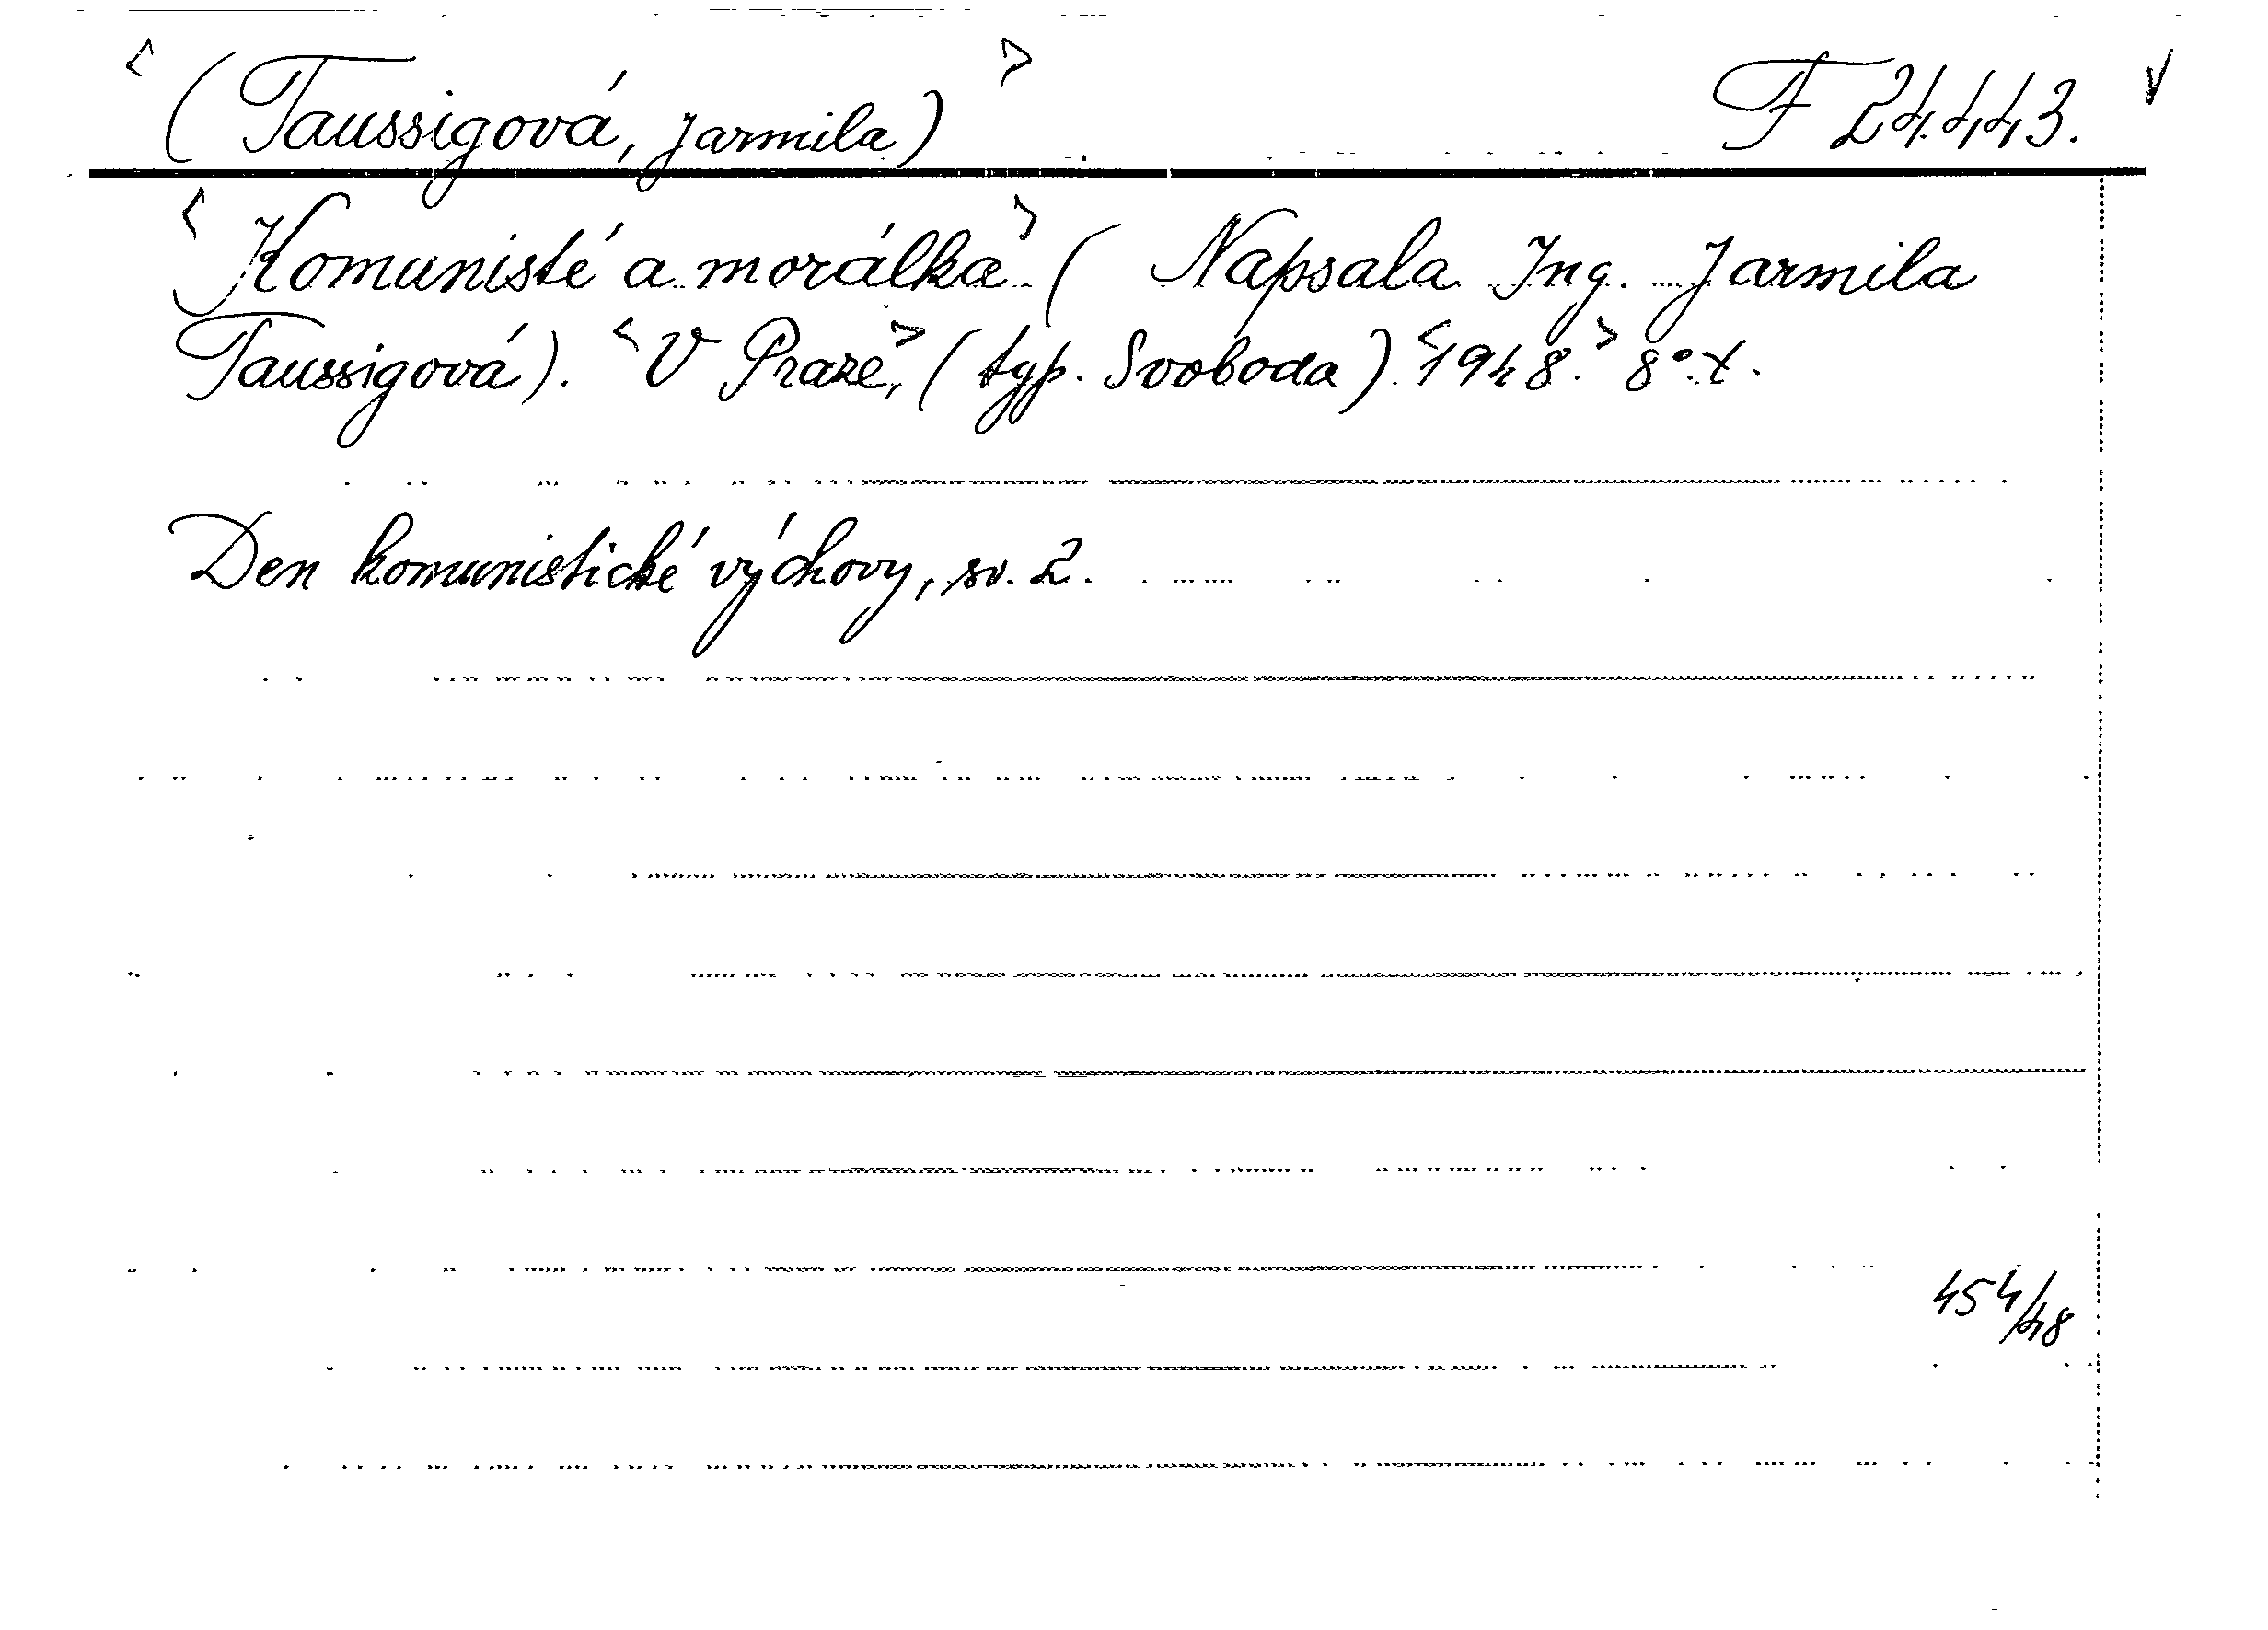 <(Taussigová, Jarmila)> F 24.443. v
<Komunisté a morálka> (Napsala Ing. Jarmila
Taussigová). <V Praze,> (typ. Svoboda). <1948.> 8°. t.
Den komunistické výchovy, sv. 2.
454/48